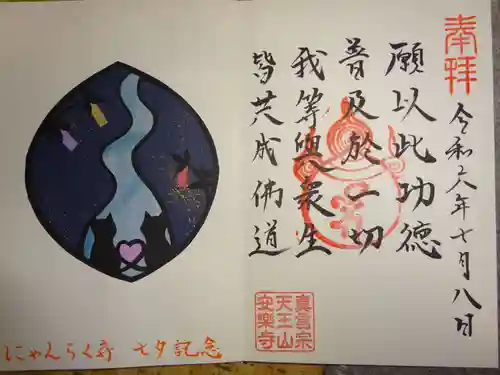 奉拝
令和六年七月八日
願以此功徳
普及於一切
我等與衆生
皆共成佛道
真言宗
天王山
安楽寺
にゃんらく寺 七夕記念